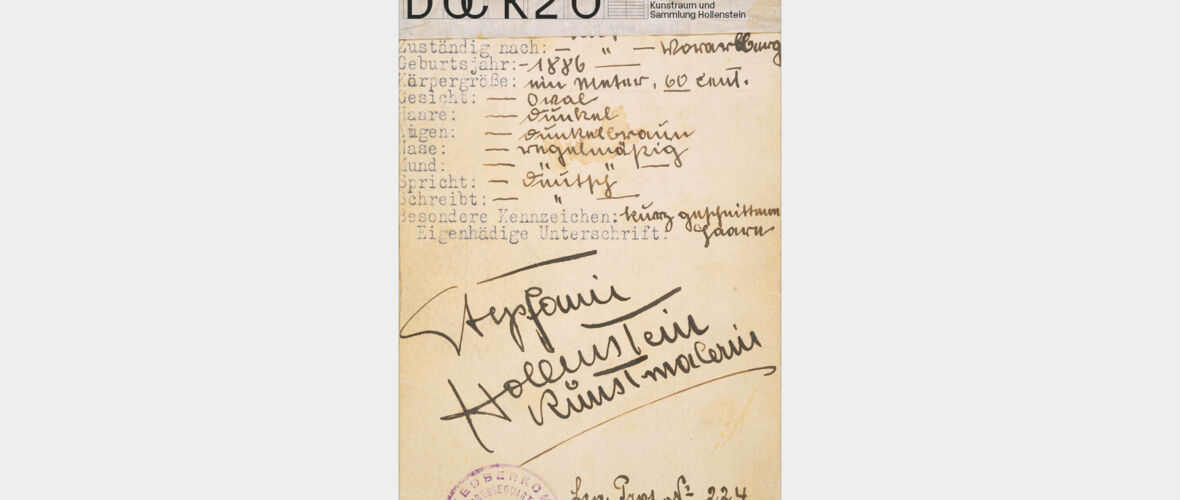 DOCK20
Kunstraum und
Sammlung Hollenstein
Zuständig nach: — " — Vorarlberg
Geburtsjahr: - 1886 —
Körpergröße: ein Meter, 60 Cent.
Gesicht: — Oval
Haare: — dunkel
Augen: — dunkelbraun
Nase: — regelmäßig
Mund: — " " —
Spricht: — deutsch
Schreibt: — " —
Besondere Kennzeichen: kurz geschnittene
Eigenhädige Unterschrift. Haare
Stephanie
Hollenstein
Kunstmalerin
Leg. Prot. Nº 224